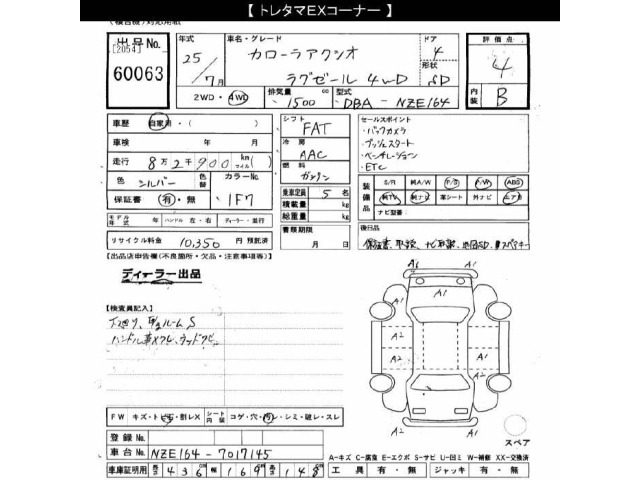 【 トレタマEXコーナー 】
出品No.
[2054]
60063
年式
25/7月
車名・グレード
カローラアクシオ
ラグゼール 4WD
ドア
4
形状
SD
評価点
4
内装
B
2WD・4WD
排気量
1500
cc
型式
DBA-NZE164
車歴
自家用・( )
車検 年 月
走行 8万2千900 km マイル ( )
色 シルバー 色替
カラーNo. 1F7
保証書 有・無
モデル年式 年 ハンドル 左・右 ディーラー・並行
リサイクル料金 10,350 円 預託済
シフト
FAT
冷房
AAC
燃料
ガソリン
乗車定員 5 名
積載量 kg
総重量 kg
書類期限
月 日
セールスポイント
・バックカメラ
・プッシュスタート
・ETC
装備品
S/R 純A/W P/S P/W ABS
純TV 純ナビ 革シート 外ナビ エアB
ナビ型番
後日品
保証書、取説、ナビ取説、
【出品店申告欄(不良箇所・欠品・注意事項等)】
ディーラー出品
【検査員記入】
下廻り、 ルームS
FW キズ・トビ石・割レX シート内装 コゲ・穴・汚レ・シミ・破レ・スレ
登録No.
車台No. NZE164-7017145
車庫証明用 長さ 436 幅 169 高さ 148
A1 A1
A1 A1 A1
A2 A1
A2 A2
A1 A1
スペア
A-キズ C-腐食 E-エクボ S-サビ U-凹ミ W-補修 XX-交換済
工具 有・無 ジャッキ 有・無